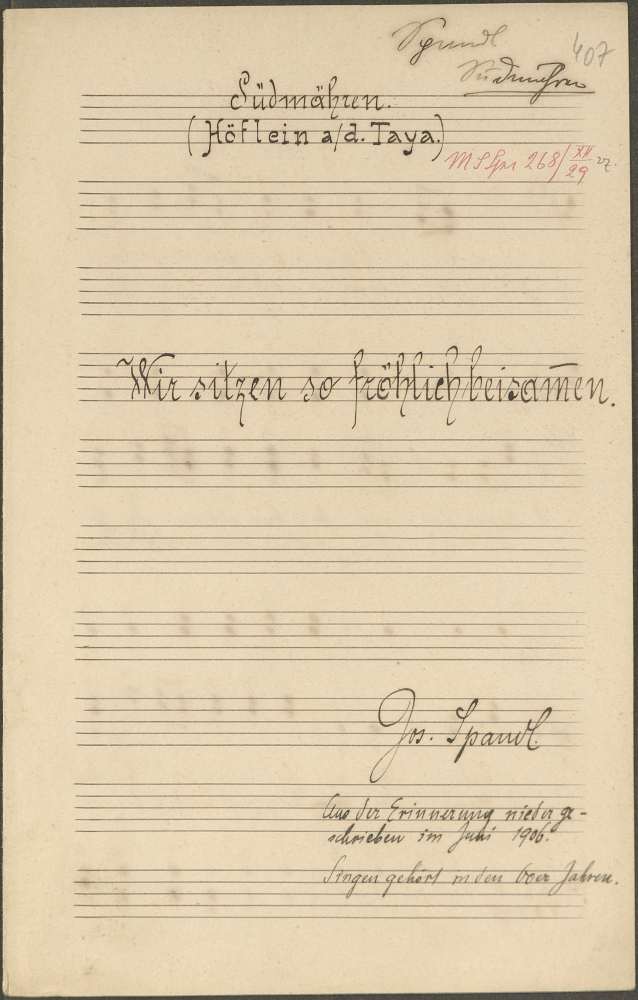 Spandl
407
Südmähren
Südmähren.
(Höflein a/d. Taya.)
268/XV 29
Wir sitzen so fröhlich beisam̅en.
Jos. Spandl
Aus der Erinnerung niederge-
schrieben im Juni 1906.
Singen gehört in den 60er Jahren.